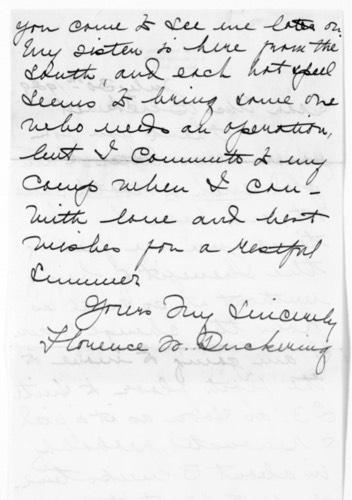 you come to see me later on.
My sister is here from the
South and each hot spell
seems to bring some one
who needs an operation,
but I commute to my
camp when I can -
With love and best
wishes for a restful
summer
Yours very Sincerely
Florence W. Duckering